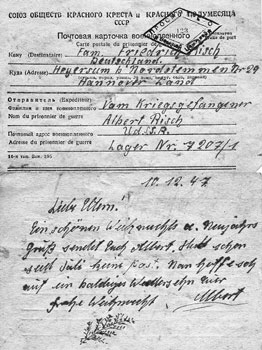 СОЮЗ ОБЩЕСТВ КРАСНОГО КРЕСТА и КРАСНОГО ПОЛУМЕСЯЦА
СССР
Почтовая карточка военнопленного
Carte postale du prisonnier de guerre
Кому (Destinataire) Fam. Friedrich Risch
Deutschland.
Куда (Adresse) Heyersum b/ Nordstemmen Nr 29
Hannover Land
Отправитель (Expéditeur) Vom Kriegsgefangener
Nom du prisonnier de guerre Albert Risch
Почтовый адрес военнопленного U.d.S.S.R.
Adresse du prisonnier de guerre Lager Nr. 7207/1
10.12.47.
Liebe Eltern.
Ein schönen Weihnachts u. Neujahrs
Gruß sendet Euch Albert. schon
seit Juli keine Post. Nun hoffe ich
auf ein baldiges Wiedersehn
frohe Weihnacht Albert